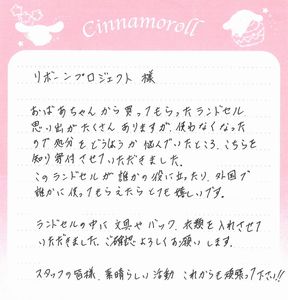 Cinnamoroll
リボーンプロジェクト 様
おばあちゃんから買ってもらったランドセル
思い出がたくさんありますが、使わなくなった
ので処分をどうしようか悩んでいたところ、こちらを
知り寄付させていただきました。
このランドセルが誰かの役に出たり、外国で
誰かに使ってもらえたらとても嬉しいです。
ランドセルの中に文具やバック、衣類を入れさせて
いただきました、ご確認よろしくお願いします。
スタッフの皆様、素晴らしい活動 これからも頑張って下さい!!